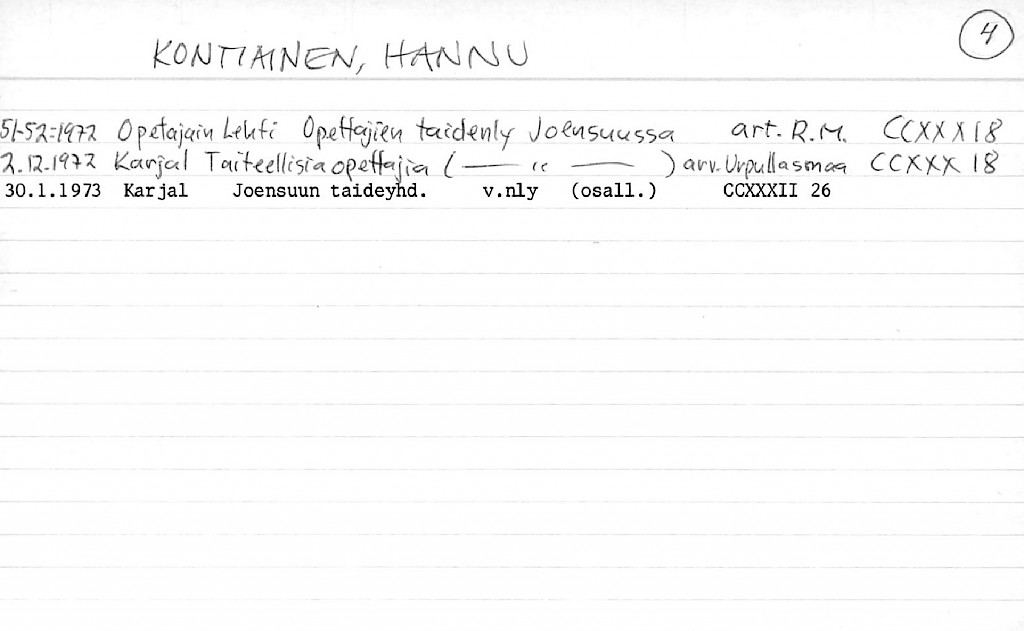 4
KONTIAINEN, HANNU
51-52-1972 Opetajain Lehti Opettajien taidenly Joensuussa art. R.M. CCXXX 18
2.12.1972 Karjal Taiteellisia opettajia ( —— " —— ) arv. Urpu Uasmaa CCXXX 18
30.1.1973 Karjal Joensuun taideyhd. v.nly (osall.) CCXXXII 26